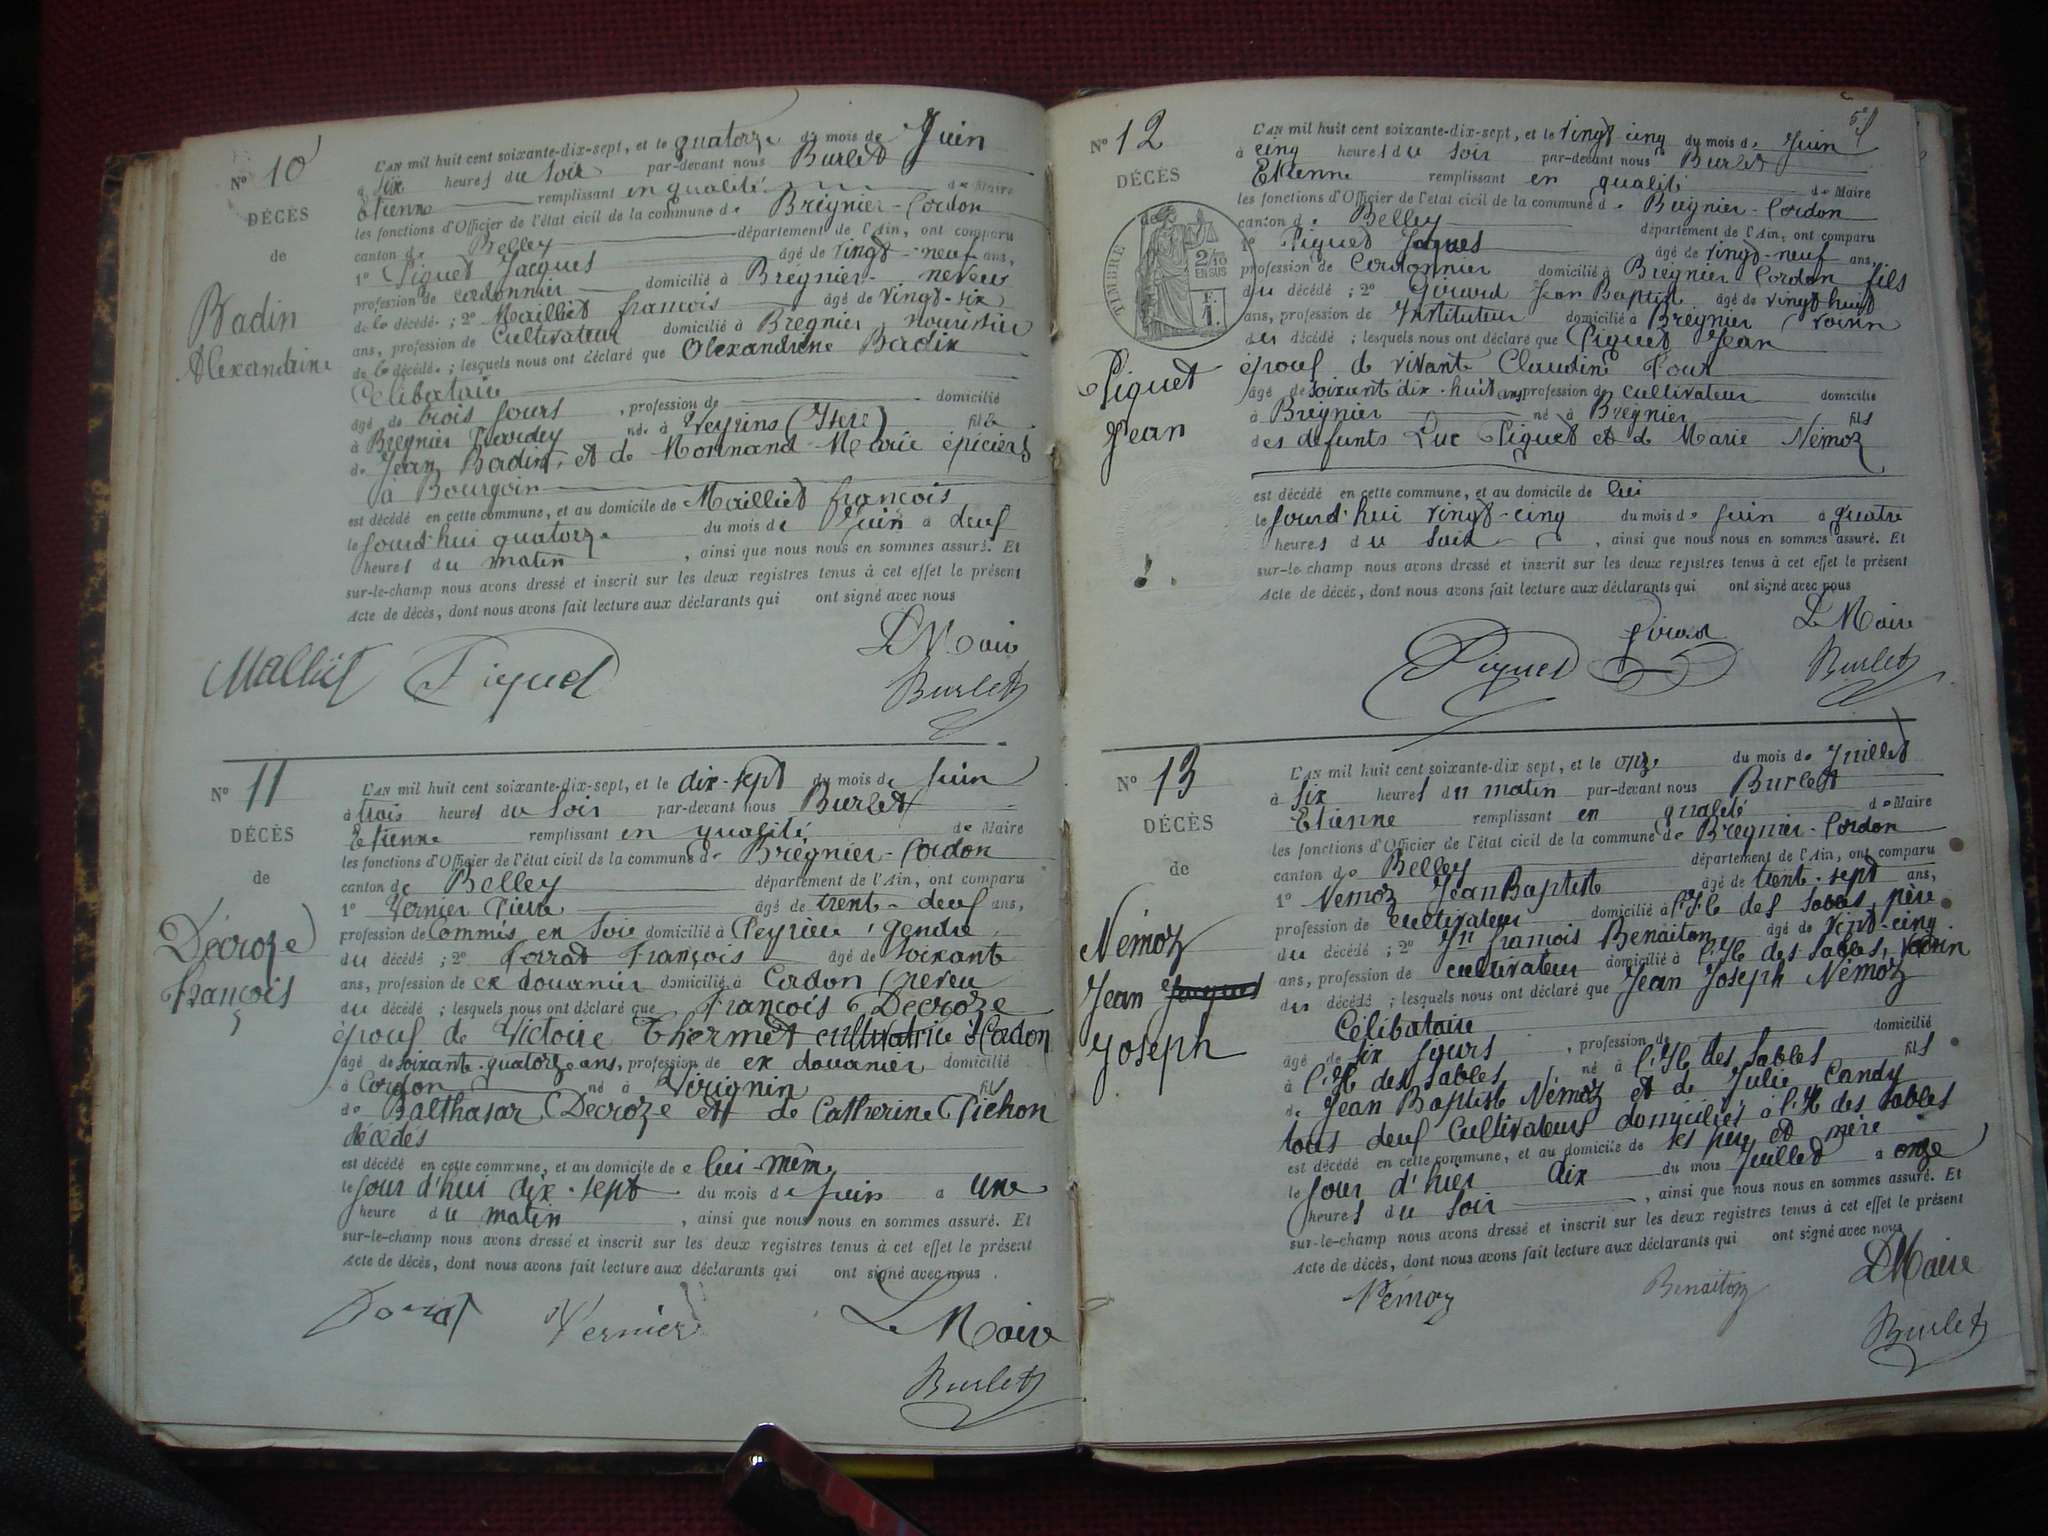 N° 10
DÉCÈS
de
Badin
Alexandrine
L'AN mil huit cent soixante-dix-sept, et le quatorze du mois de Juin
à six heures du soir par-devant nous Burlet
Etienne remplissant en qualité de Maire
les fonctions d'Officier de l'état civil de la commune de Brégnier-Cordon
canton de Belley département de l'Ain, ont comparu
1° Piguet Jacques âgé de vingt-neuf ans,
profession de cordonnier domicilié à Bregnier-
de la décédé ; 2° Maillet françois âgé de vingt-six
ans, profession de Cultivateur domicilié à Bregnier,
de la décédé ; lesquels nous ont déclaré que Alexandrine Badin
Célibataire
âgé de trois jours , profession de domicilié
à Bregnier née à Veyrins (Isere) fille
de Jean Badin, et de Mornand Marie épiciers
à Bourgoin
est décédé en cette commune, et au domicile de Mailliet françois
le jourd'hui quatorze du mois de Juin à deux
heures du matin , ainsi que nous nous en sommes assuré. Et
sur-le-champ nous avons dressé et inscrit sur les deux registres tenus à cet effet le présent
Acte de décès, dont nous avons fait lecture aux déclarants qui ont signé avec nous
Le Maire
Malliet Piguet Burlet
N° 11
DÉCÈS
de
Décroze
François
L'AN mil huit cent soixante-dix-sept, et le dix-sept du mois de Juin
à trois heures du soir par-devant nous Burlet
Etienne remplissant en qualité de Maire
les fonctions d'Officier de l'état civil de la commune de Brégnier-Cordon
canton de Belley département de l'Ain, ont comparu
1° Vernier Pierre âgé de trent-deux ans,
profession de Commis en Soie domicilié à Peyrieu, gendre
du décédé ; 2° Porrat François âgé de soixante
ans, profession de ex douanier domicilié à Cordon, neveu
du décédé ; lesquels nous ont déclaré que François Décroze
époux de Victoire Thermet cultivatrice à Cordon
âgé de soixant-quatorze ans, profession de ex douanier domicilié
à Cordon né à Virignin fil
de Balthasar Decroze et de Catherine Pichon
décédés
est décédé en cette commune, et au domicile de lui-même
le jour d'hui dix-sept du mois de juin à une
heure du matin , ainsi que nous nous en sommes assuré. Et
sur-le-champ nous avons dressé et inscrit sur les deux registres tenus à cet effet le présent
Acte de décès, dont nous avons fait lecture aux déclarants qui ont signé avec nous.
Porrat Vernier Le Maire
Burlet
N° 12
DÉCÈS
de
TIMBRE
2/10
EN SUS
F.
1.
Piguet
Jean
L'AN mil huit cent soixante-dix-sept, et le vingt-cinq du mois de Juin
à cinq heures du soir par-devant nous Burlet
Etienne remplissant en qualité de Maire
les fonctions d'Officier de l'état civil de la commune de Bregnier-Cordon
canton de Belley département de l'Ain, ont comparu
1° Piguet Jaques âgé de vingt-neuf ans,
profession de Cordonnier domicilié à Bregnier Cordon fils
du décédé ; 2° Gerard Jean Baptist âgé de vingt huit
ans, profession de Instituteur domicilié à Bregnier, voisin
du décédé ; lesquels nous ont déclaré que Piguet Jean
époux de vivante Claudine Four
âgé de soixant dix-huit ans, profession de cultivateur domicilié
à Brégnier né à Bregnier fils
des defunts Luc Piguet et de Marie Némoz
est décédé en cette commune, et au domicile de lui
le jourd'hui vingt-cinq du mois de juin à quatre
heures du soir , ainsi que nous nous en sommes assuré. Et
sur-le-champ nous avons dressé et inscrit sur les deux registres tenus à cet effet le présent
Acte de décès, dont nous avons fait lecture aux déclarants qui ont signé avec nous
Le Maire
Piguet Burlet
N° 13
DÉCÈS
de
Némoz
Jean Jacques
Joseph
L'AN mil huit cent soixante-dix sept, et le onze du mois de Juillet
à six heures du matin par-devant nous Burlet
Etienne remplissant en qualité de Maire
les fonctions d'Officier de l'état civil de la commune de Bregnier-Cordon
canton de Belley département de l'Ain, ont comparu
1° Nemoz Jean Baptiste âgé de trent-sept ans,
profession de cultivateur domicilié à l'Ile des Sables, père
du décédé ; 2° Jn François Benaiton âgé de vint-cinq
ans, profession de cultivateur domicilié à l'Ile des Sables, voisin
du décédé ; lesquels nous ont déclaré que Jean Joseph Némoz
Célibataire
âgé de six jours , profession de domicilié
à l'Ile des Sables né à l'Ile des Sables fils
de Jean Baptiste Némoz et de Julie Candy
tous deux Cultivateurs domiciliés à l'Ile des Sables
est décédé en cette commune, et au domicile de ses père et mère
le jour d'hier dix du mois Juillet à onze
heures du soir , ainsi que nous nous en sommes assuré. Et
sur-le-champ nous avons dressé et inscrit sur les deux registres tenus à cet effet le présent
Acte de décès, dont nous avons fait lecture aux déclarants qui ont signé avec nous
Némoz Benaiton Le Maire
Burlet